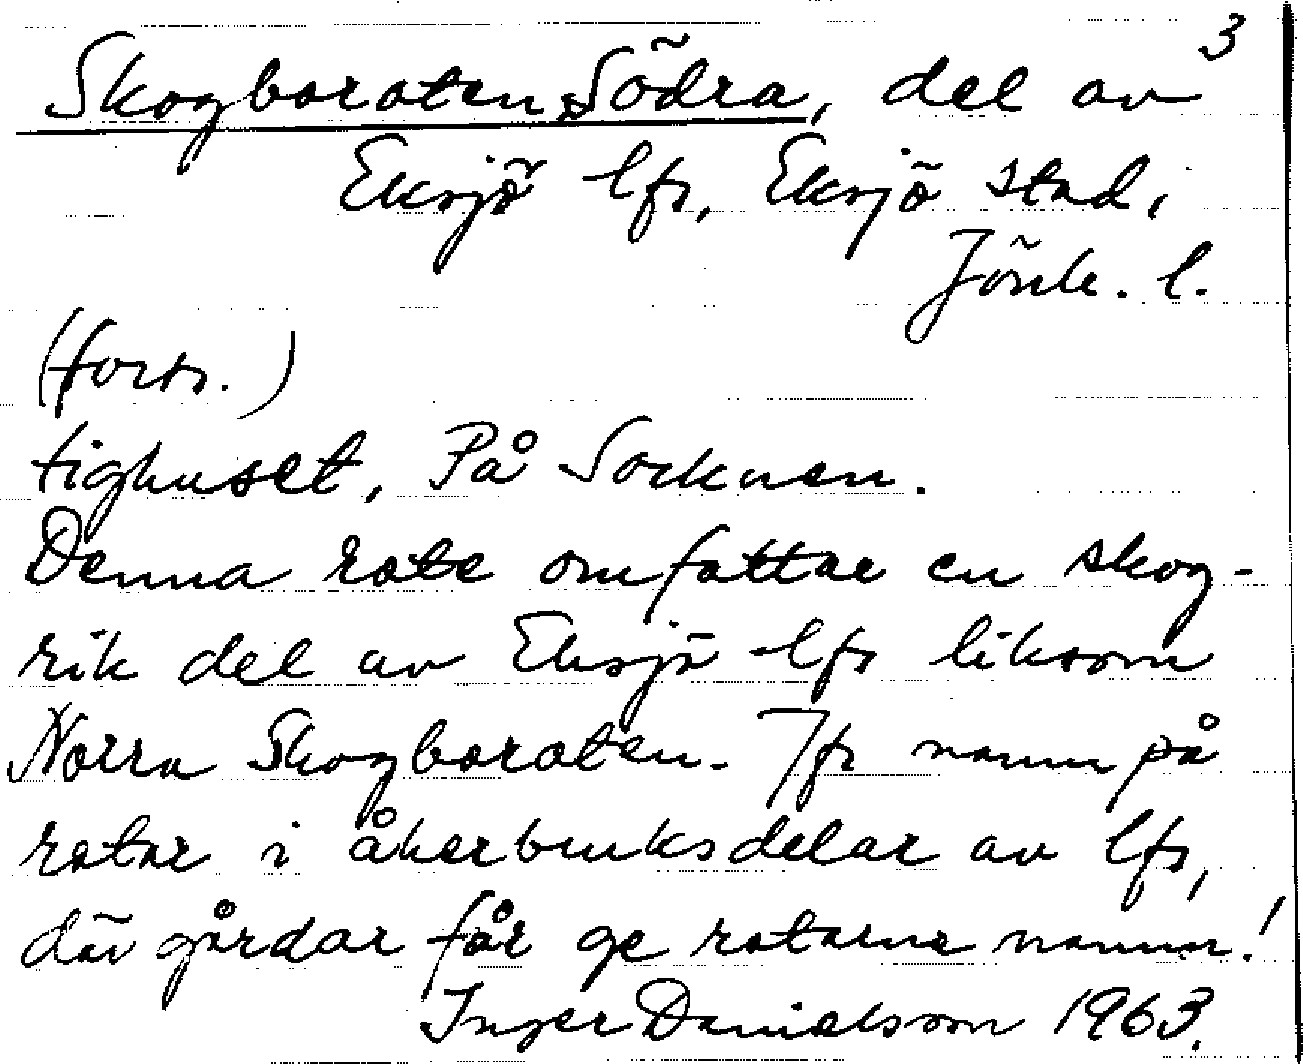 3
Skogboroten, Södra, del av
Eksjö lfs, Eksjö stad,
Jönk. l.
(forts.)
tighuset, På Socknen.
Denna rote omfattar en skog-
rik del av Eksjö lfs liksom
Norra Skogboroten. Jfr namn på
rotar i åkerbruksdelar av lfs,
där gårdar får ge rotarna namn!
Inger Danielsson 1963.